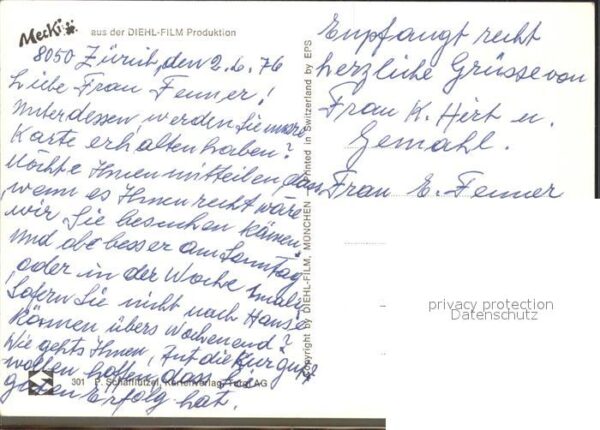 Mecki
aus der DIEHL-FILM Produktion
8050 Zürich, den 2.6.76
Liebe Frau Fenner!
Unterdessen werden Sie unsre
Karte erhalten haben?
Möchte Ihnen mitteilen dass
wenn es Ihnen recht wäre
wir Sie besuchen kämen.
Und ob besser am Sonntag
oder in der Woche 1mal?
Sofern Sie nicht nach Hause
können übers Wochenend?
Wie gehts Ihnen, tut die Kur gut?
wollen hoffen dass sie
guten Erfolg hat.
301 P. Schaffützel, Kartenverlag, Total AG
Copyright by DIEHL-FILM, MÜNCHEN Printed in Switzerland by EPS
Empfangt recht
herzliche Grüsse von
Frau K. Hirt u.
Gemahl.
Frau E. Fenner
privacy protection
Datenschutz